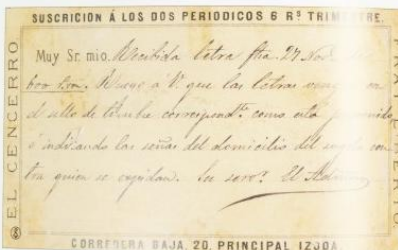 SUSCRICION Á LOS DOS PERIODICOS 6 Rˢ TRIMESTRE.
EL CENCERRO
Muy Sr. mio. Recibida letra fha. 27 Nov.
600 r.vn. Ruego á V. que las letras vengan con
el sello de timbre correspondᵗᵉ como está prevenido,
é indicando las señas del domicilio del sugeto con-
tra quien se expidan. Su servᵒʳ El Admin
CORREDERA BAJA, 20, PRINCIPAL IZQDA.